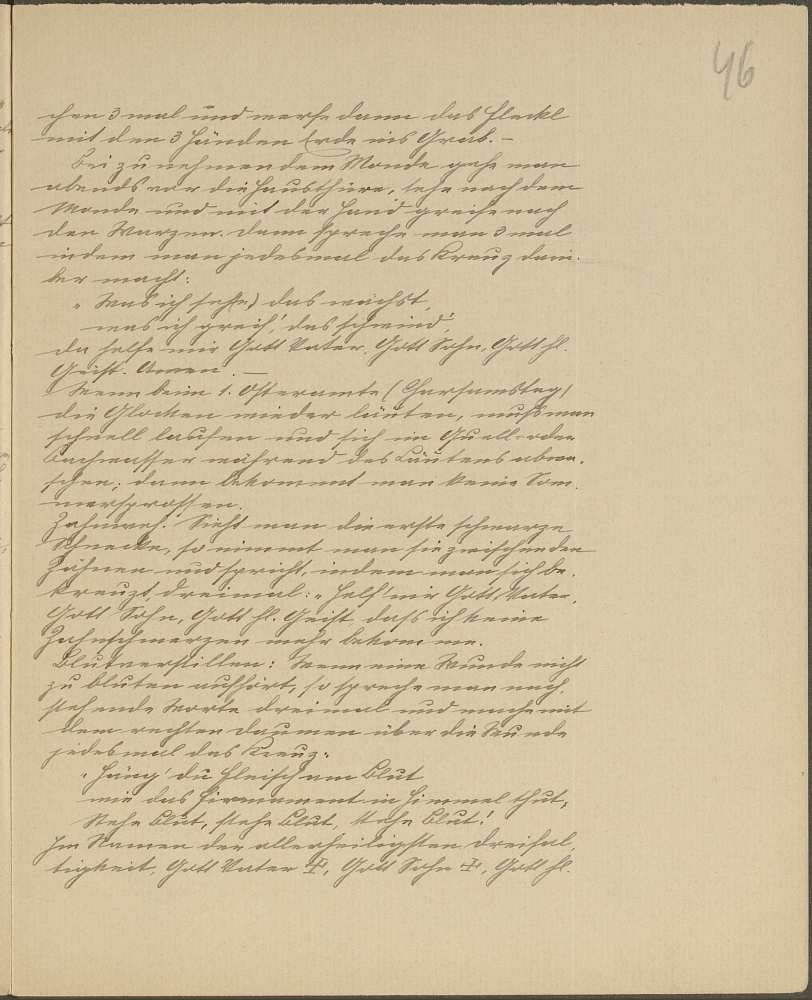 46
chen 3 mal und werfe dann das Fleckl
mit den 3 Händen Erde ins Grab. –
Bei zunehmendem Monde gehe man
abends vor die Hausthüre, sehe nach dem
Monde und mit der Hand greife nach
den Warzen. Dann spreche man 3 mal
indem man jedesmal das Kreuz darü-
ber macht:
„Was ich seh(e) das wachst,
was ich greif', das schwind',
da helfe mir Gott Vater, Gott Sohn, Gott hl.
Geist. Amen". –
Wenn beim 1. Osteramte (Charsamstag)
die Glocken wieder läuten, muß man
schnell laufen und sich im Quell- oder
Bachwasser während des Läutens abwa-
schen; dann bekommt man keine Som-
mersprossen.
Zahnweh: Sieht man die erste schwarze
Schnecke, so nimmt man sie zwischen den
Zähnen und spricht, indem man sich be-
kreuzt, dreimal: „Helf' mir Gott Vater,
Gott Sohn, Gott hl. Geist daß ich keine
Zahnschmerzen mehr bekomme.
Blutverstillen: Wenn eine Wunde nicht
zu bluten aufhört, so spreche man nach-
stehende Worte dreimal und mache mit
dem rechten Daumen über die Wunde
jedesmal das Kreuz:
„Häng' du Fleisch am Blut
wie das Firmament in Himmel thut,
Stehe Blut, stehe Blut, stehe Blut!
Im Namen der allerheiligsten Dreifal-
tigkeit, Gott Vater ✠, Gott Sohn ✠, Gott hl.